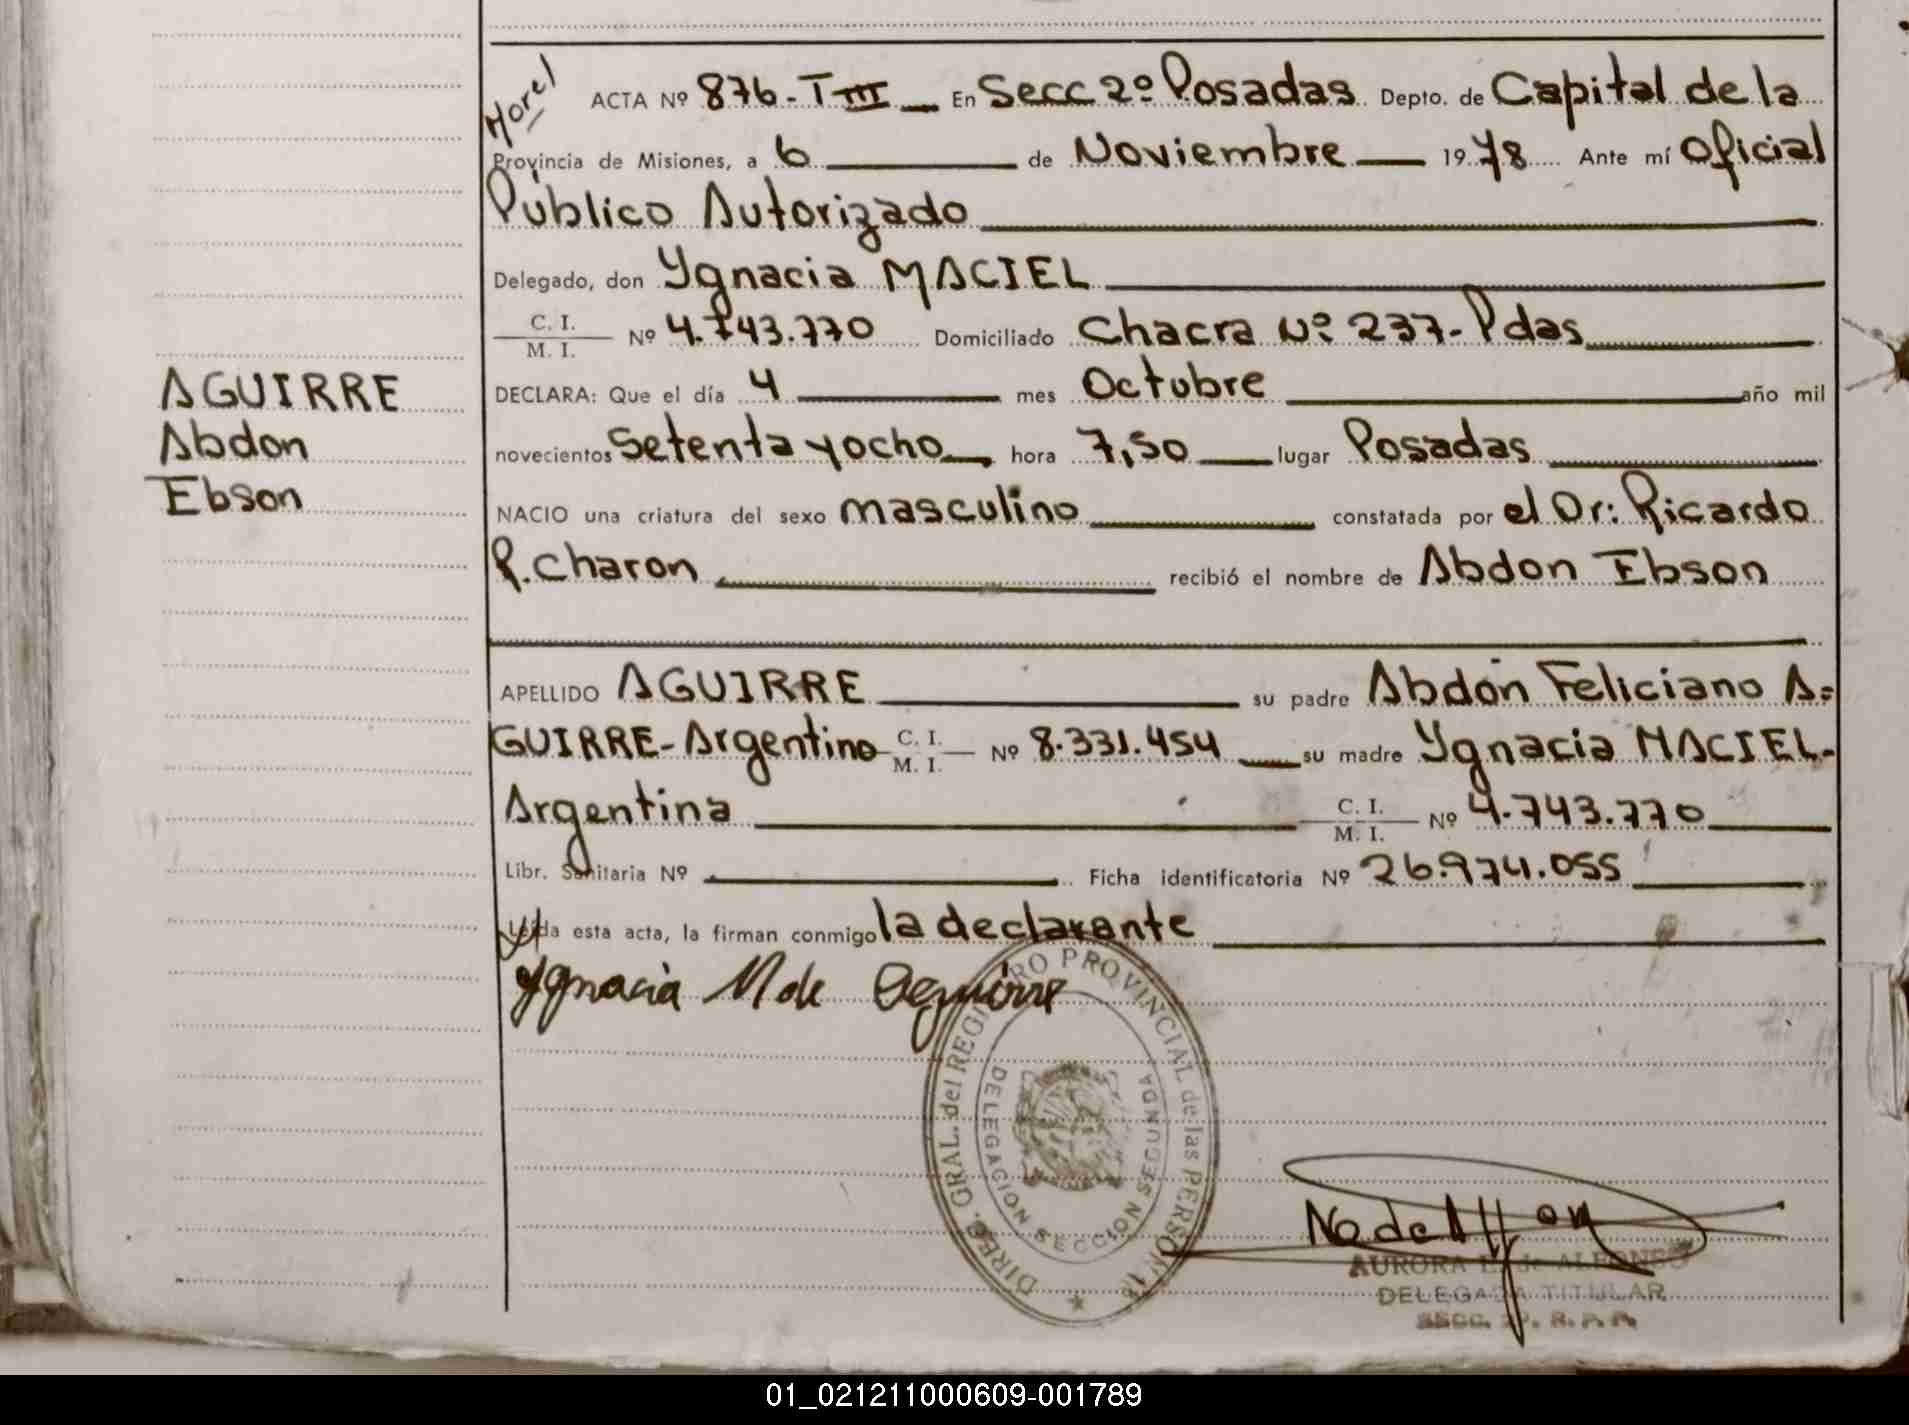 Morel
ACTA Nº 876-TIII En Secc 2º Posadas Depto. de Capital de la
Provincia de Misiones, a 6 de Noviembre 1978 Ante mí Oficial
Público Autorizado
Delegado, don Ygnacia MACIEL
C. I.
M. I. Nº 4.743.770 Domiciliado Chacra Nº 237-Pdas
DECLARA: Que el día 4 mes Octubre año mil
novecientos Setenta y ocho hora 7,50 lugar Posadas
NACIO una criatura del sexo masculino constatada por el Dr: Ricardo
R. Charon recibió el nombre de Abdon Ebson
AGUIRRE
Abdon
Ebson
APELLIDO AGUIRRE su padre Abdón Feliciano A=
GUIRRE-Argentino C. I. M. I. Nº 8.331.454 su madre Ygnacia MACIEL-
Argentina C. I. M. I. Nº 4.743.770
Libr. Sanitaria Nº Ficha identificatoria Nº 26.974.055
Leída esta acta, la firman conmigo la declarante
Ygnacia M de Aguirre
DIREC. GRAL. del REGISTRO PROVINCIAL de las PERSONAS
DELEGACION SECCION SEGUNDA
AURORA E. de ALFONSO
DELEGADA TITULAR
SECC. 2º. R. P. P.
01_021211000609-001789